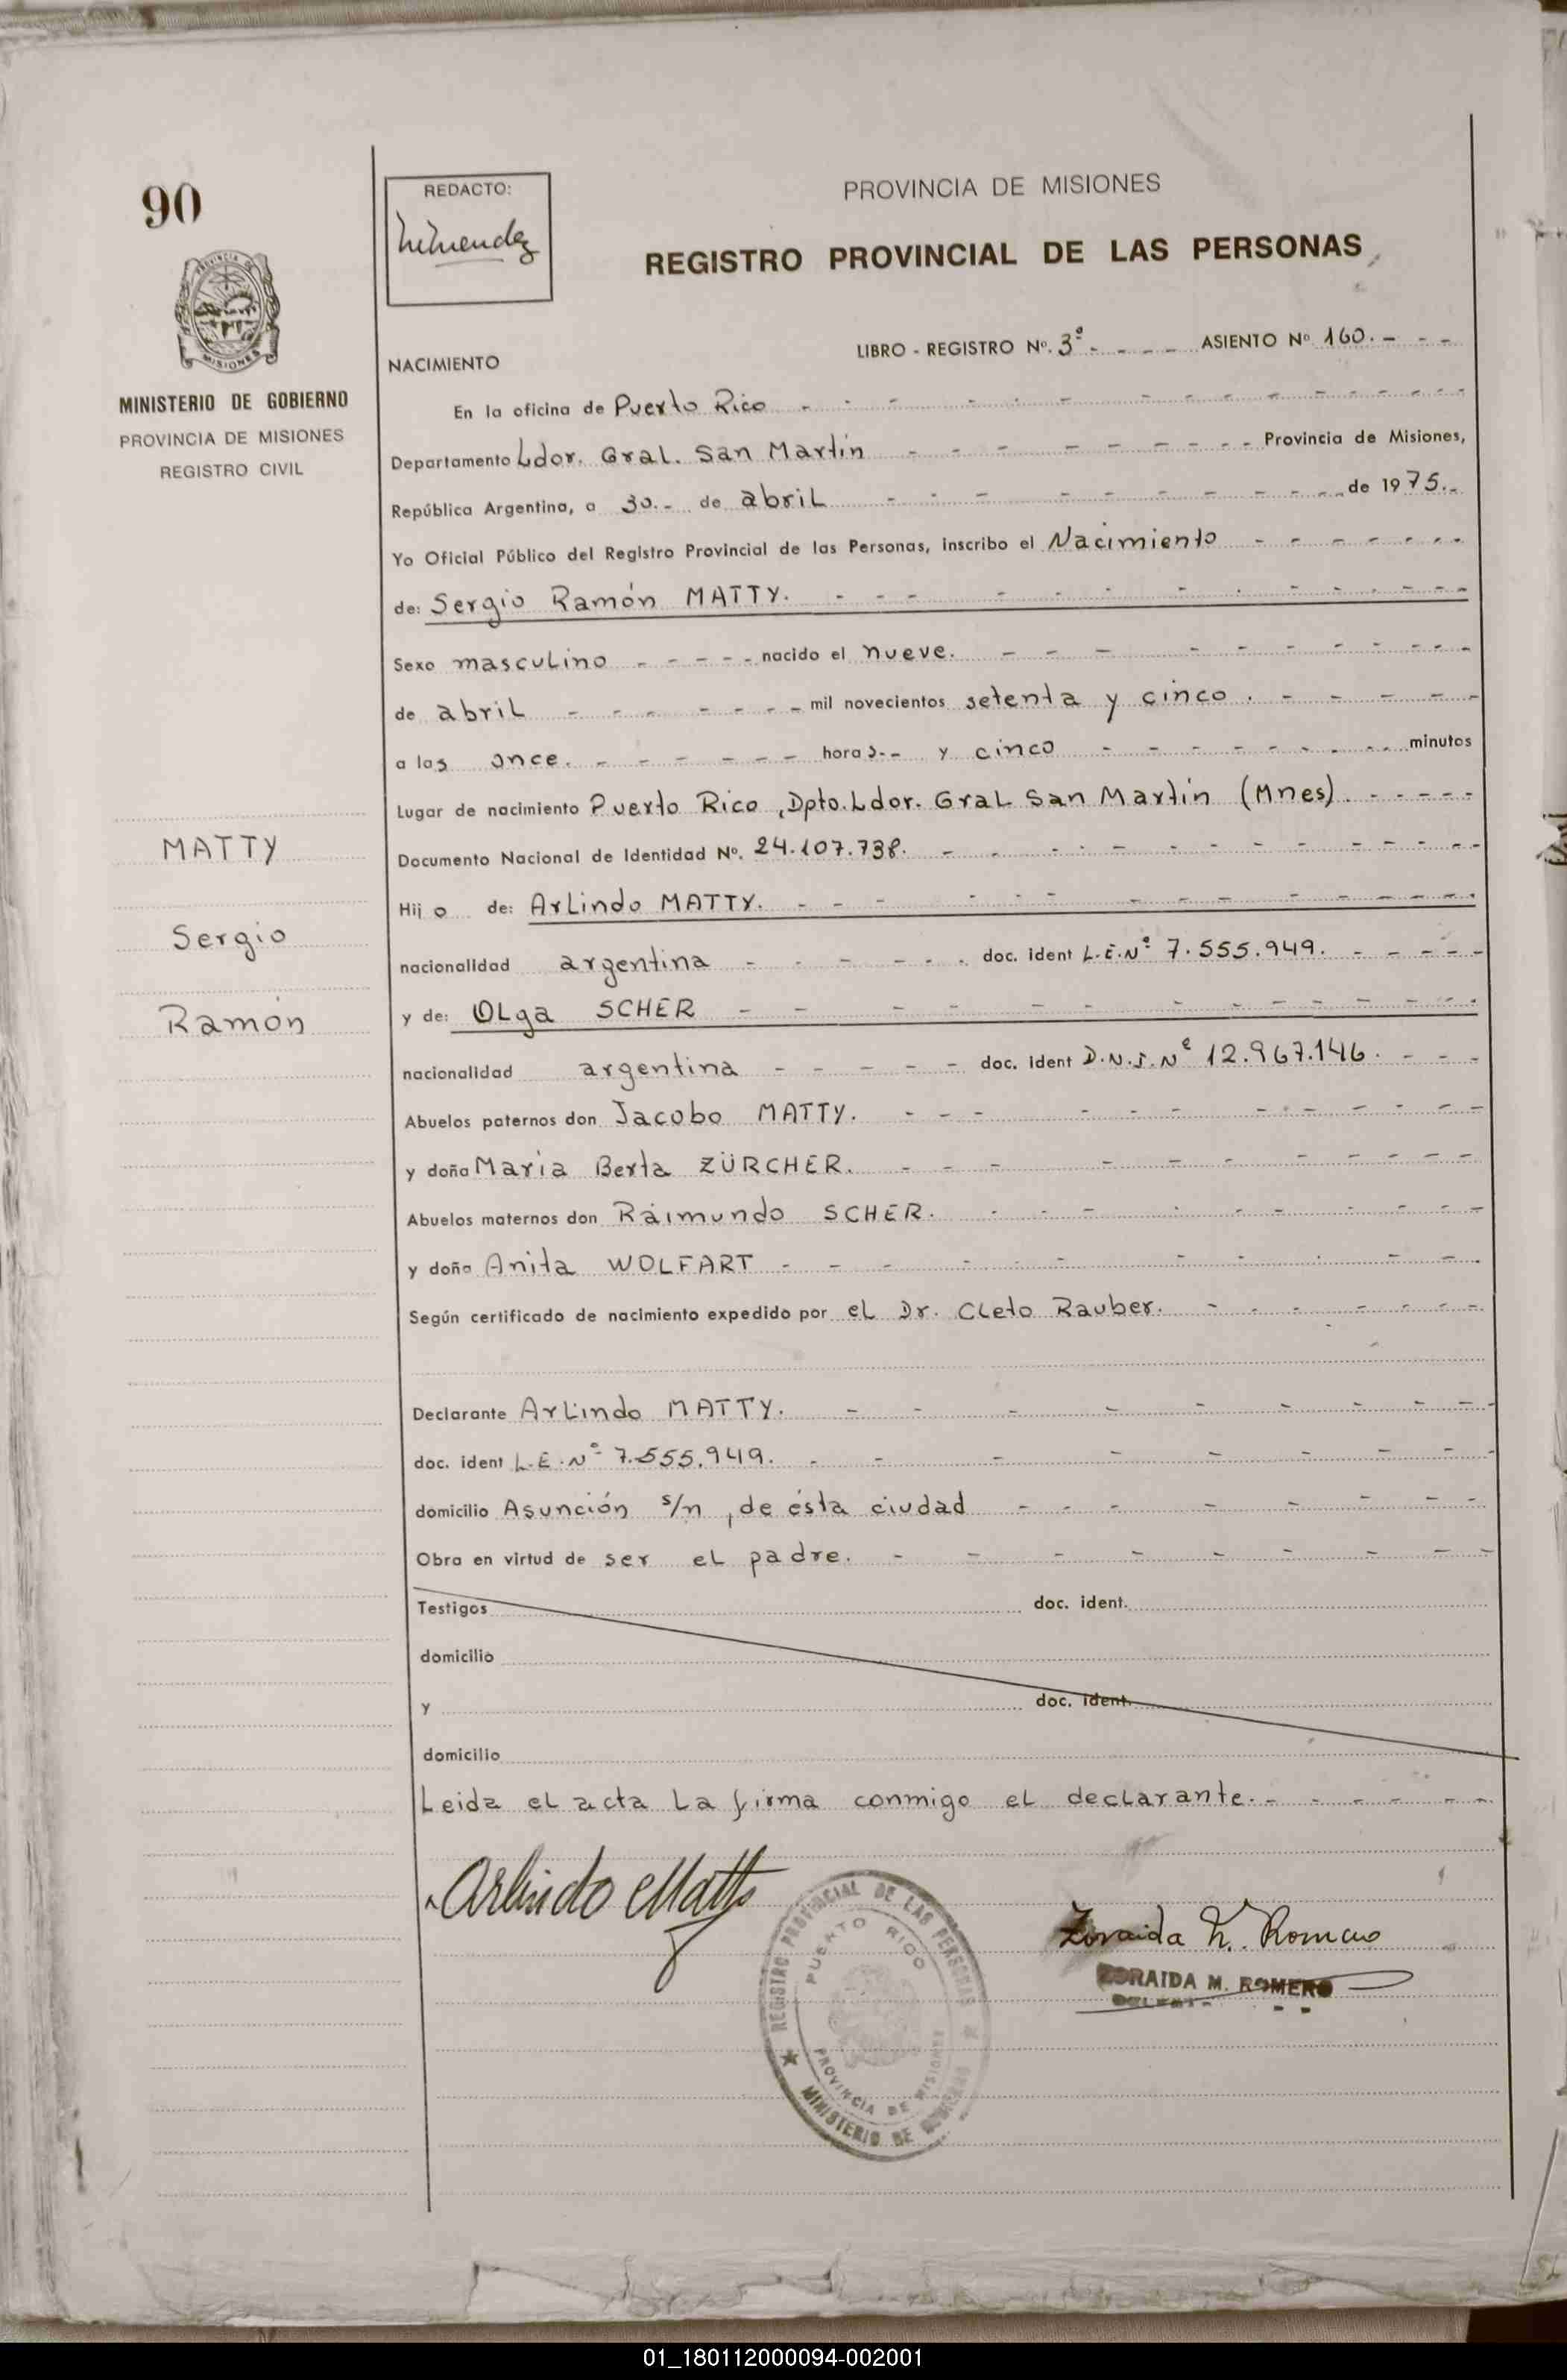 90
PROVINCIA DE MISIONES
MINISTERIO DE GOBIERNO
PROVINCIA DE MISIONES
REGISTRO CIVIL
MATTY
Sergio
Ramón
REDACTO:
PROVINCIA DE MISIONES
REGISTRO PROVINCIAL DE LAS PERSONAS
NACIMIENTO LIBRO - REGISTRO Nº. 3º - - - - ASIENTO Nº 160. - - -
En la oficina de Puerto Rico
Departamento Ldor. Gral. San Martín Provincia de Misiones,
República Argentina, a 30.- de abril de 1975.-
Yo Oficial Público del Registro Provincial de las Personas, inscribo el Nacimiento
de: Sergio Ramón MATTY.
Sexo masculino nacido el nueve.
de abril mil novecientos setenta y cinco.
a las once. horas.- y cinco minutos
Lugar de nacimiento Puerto Rico, Dpto. Ldor. Gral San Martín (Mnes).
Documento Nacional de Identidad Nº. 24.107.738.
Hijo de: Arlindo MATTY.
nacionalidad argentina doc. ident L.E.Nº 7.555.949.
y de: Olga SCHER
nacionalidad argentina doc. ident D.N.I.Nº 12.967.146.
Abuelos paternos don Jacobo MATTY.
y doña María Berta ZÜRCHER.
Abuelos maternos don Raimundo SCHER.
y doña Anita WOLFART
Según certificado de nacimiento expedido por el Dr. Cleto Rauber.
Declarante Arlindo MATTY.
doc. ident L.E.Nº 7.555.949.
domicilio Asunción s/n, de ésta ciudad
Obra en virtud de ser el padre.
Testigos doc. ident.
domicilio
y doc. ident.
domicilio
Leida el acta la firma conmigo el declarante.-
Arlindo Matty
Zoraida M. Romero
ZORAIDA M. ROMERO
REGISTRO PROVINCIAL DE LAS PERSONAS
PUERTO RICO
PROVINCIA DE MISIONES
MINISTERIO DE GOBIERNO
01_180112000094-002001